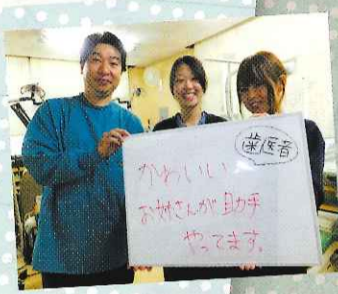 歯医者
かわいい
お姉さんが助手
やってます。